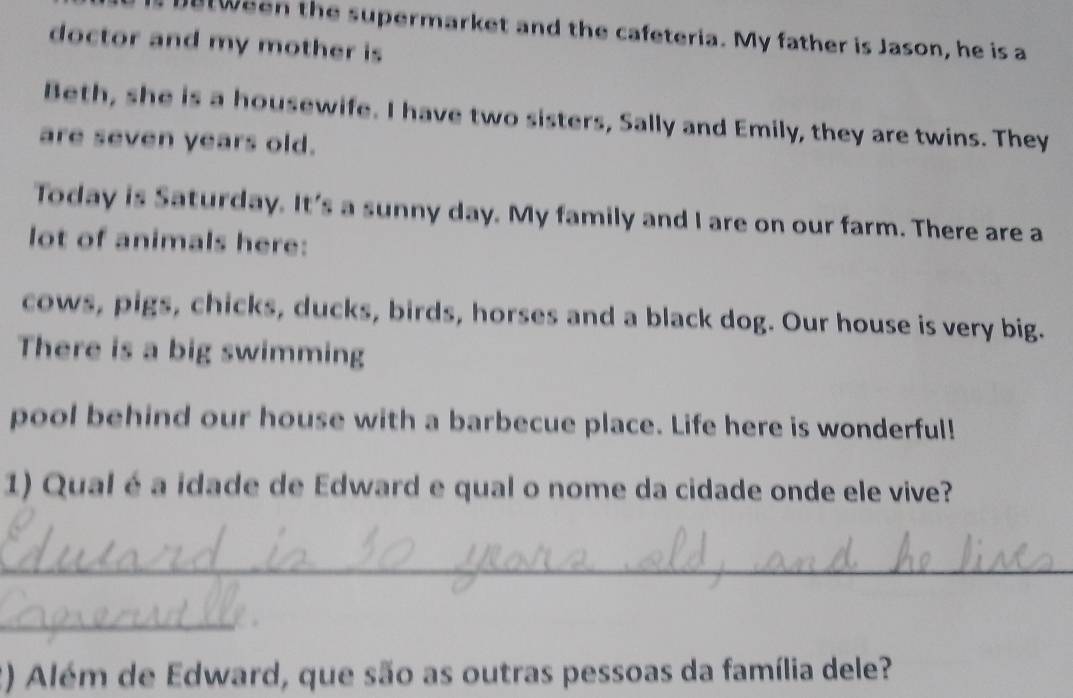 is between the supermarket and the cafeteria. My father is Jason, he is a
doctor and my mother is
Beth, she is a housewife. I have two sisters, Sally and Emily, they are twins. They
are seven years old.
Today is Saturday. It's a sunny day. My family and I are on our farm. There are a
lot of animals here:
cows, pigs, chicks, ducks, birds, horses and a black dog. Our house is very big.
There is a big swimming
pool behind our house with a barbecue place. Life here is wonderful!
1) Qual é a idade de Edward e qual o nome da cidade onde ele vive?
Edward is years old, and he lives
2) Além de Edward, que são as outras pessoas da família dele?